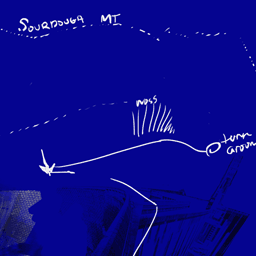 SOURDOUGH MT
WOODS
turn
around